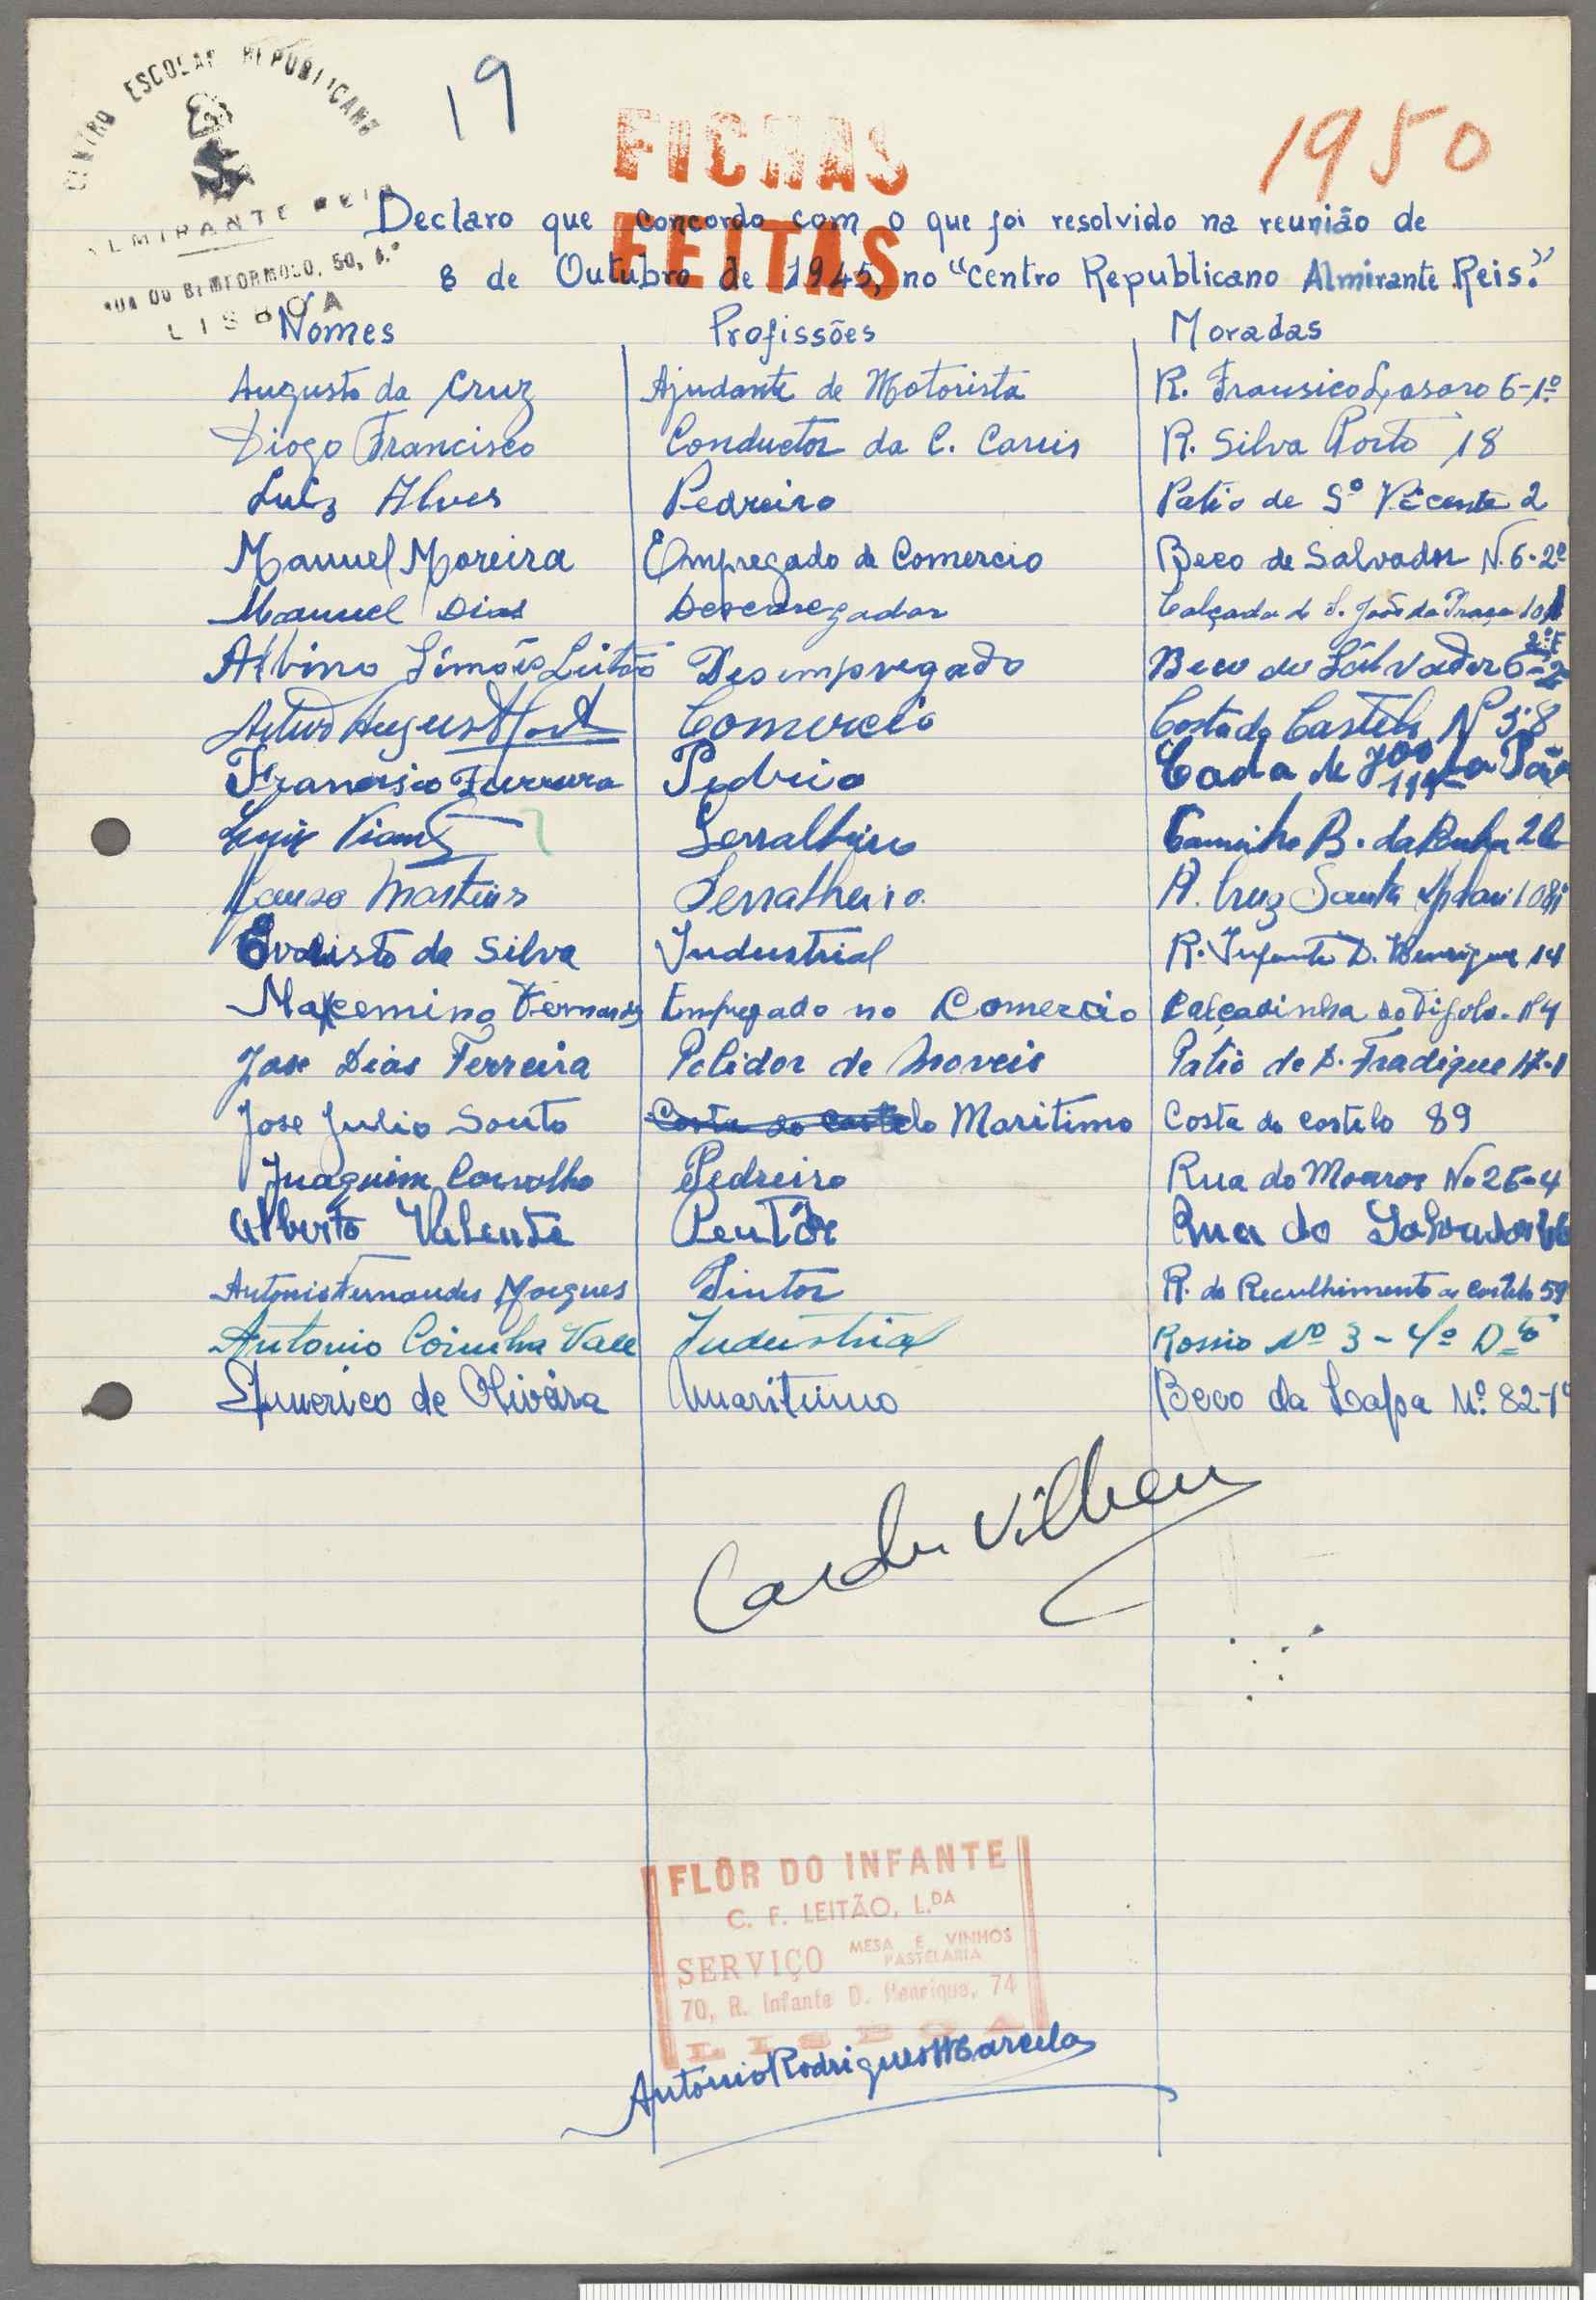 CENTRO ESCOLAR REPUBLICANO
ALMIRANTE REIS
RUA DO BEMFORMOSO, 50, 1.º
LISBOA
19
FICHAS
FEITAS
1950
Declaro que concordo com o que foi resolvido na reunião de
8 de Outubro de 1945, no "Centro Republicano Almirante Reis."
Nomes Profissões Moradas
Augusto da Cruz Ajudante de Motorista R. Fransico Lasaro 6-1º
Diogo Francisco Conductor da C. Carris R. Silva Porto 18
Luiz Alves Pedreiro Patio de Sº Vicente 2
Manuel Moreira Empregado de Comercio Beco de Salvador N. 6-2º
Manuel Dias Descarregador Calçada de S. João da Praça
Albino Simões Leitão Desempregado Beco do Salvador 6-2
Artur Augusto Comercio Costa do Castelo Nº
Francisco Ferreira Pedreio
Luiz Serralheiro Caminho B. da
Martins Serralheiro R. Cruz Santa
Evaristo da Silva Industrial R. Infante D. Henrique 14
Maxemino Fernandes Empregado no Comercio Calçadinha do
Jose Dias Ferreira Polidor de Moveis Patio de D. Fradique
Jose Julio Souto Costa do Castelo Maritimo Costa do Castelo 89
Juaquim Carvalho Pedreiro Rua do Moaros No 26-4
Alberto Valente Pentôr Rua do Salvador
Antonio Fernandes Pintor R. do Recolhimento ao Castelo 59
Antonio Coinha Vale Industrial Rossio Nº 3-4º Dto
Americo de Oliveira Maritimo Beco da Lapa Nº 82-1º
FLÔR DO INFANTE
C. F. LEITÃO, L.DA
SERVIÇO MESA E VINHOS
PASTELARIA
70, R. Infante D. Henrique, 74
LISBOA
António Rodrigues Marcelo